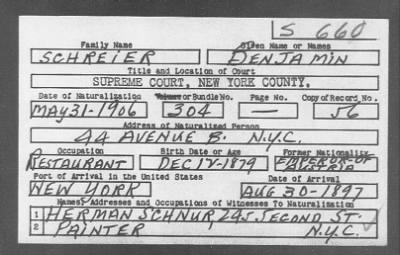 S 660
Family Name Given Name or Names
SCHREIER BENJAMIN
Title and Location of Court
SUPREME COURT, NEW YORK COUNTY.
Date of Naturalization Volume or Bundle No. Page No. Copy of Record No.
MAY 31-1906 304 — 56
Address of Naturalized Person
44 AVENUE B. N.Y.C.
Occupation Birth Date or Age Former Nationality
RESTAURANT DEC 14-1879 EMPEROR-OF AUSTRIA
Port of Arrival in the United States Date of Arrival
NEW YORK AUG 30-1897
Names, Addresses and Occupations of Witnesses To Naturalization
1 HERMAN SCHNUR, 245. SECOND ST.
2 PAINTER N.Y.C.